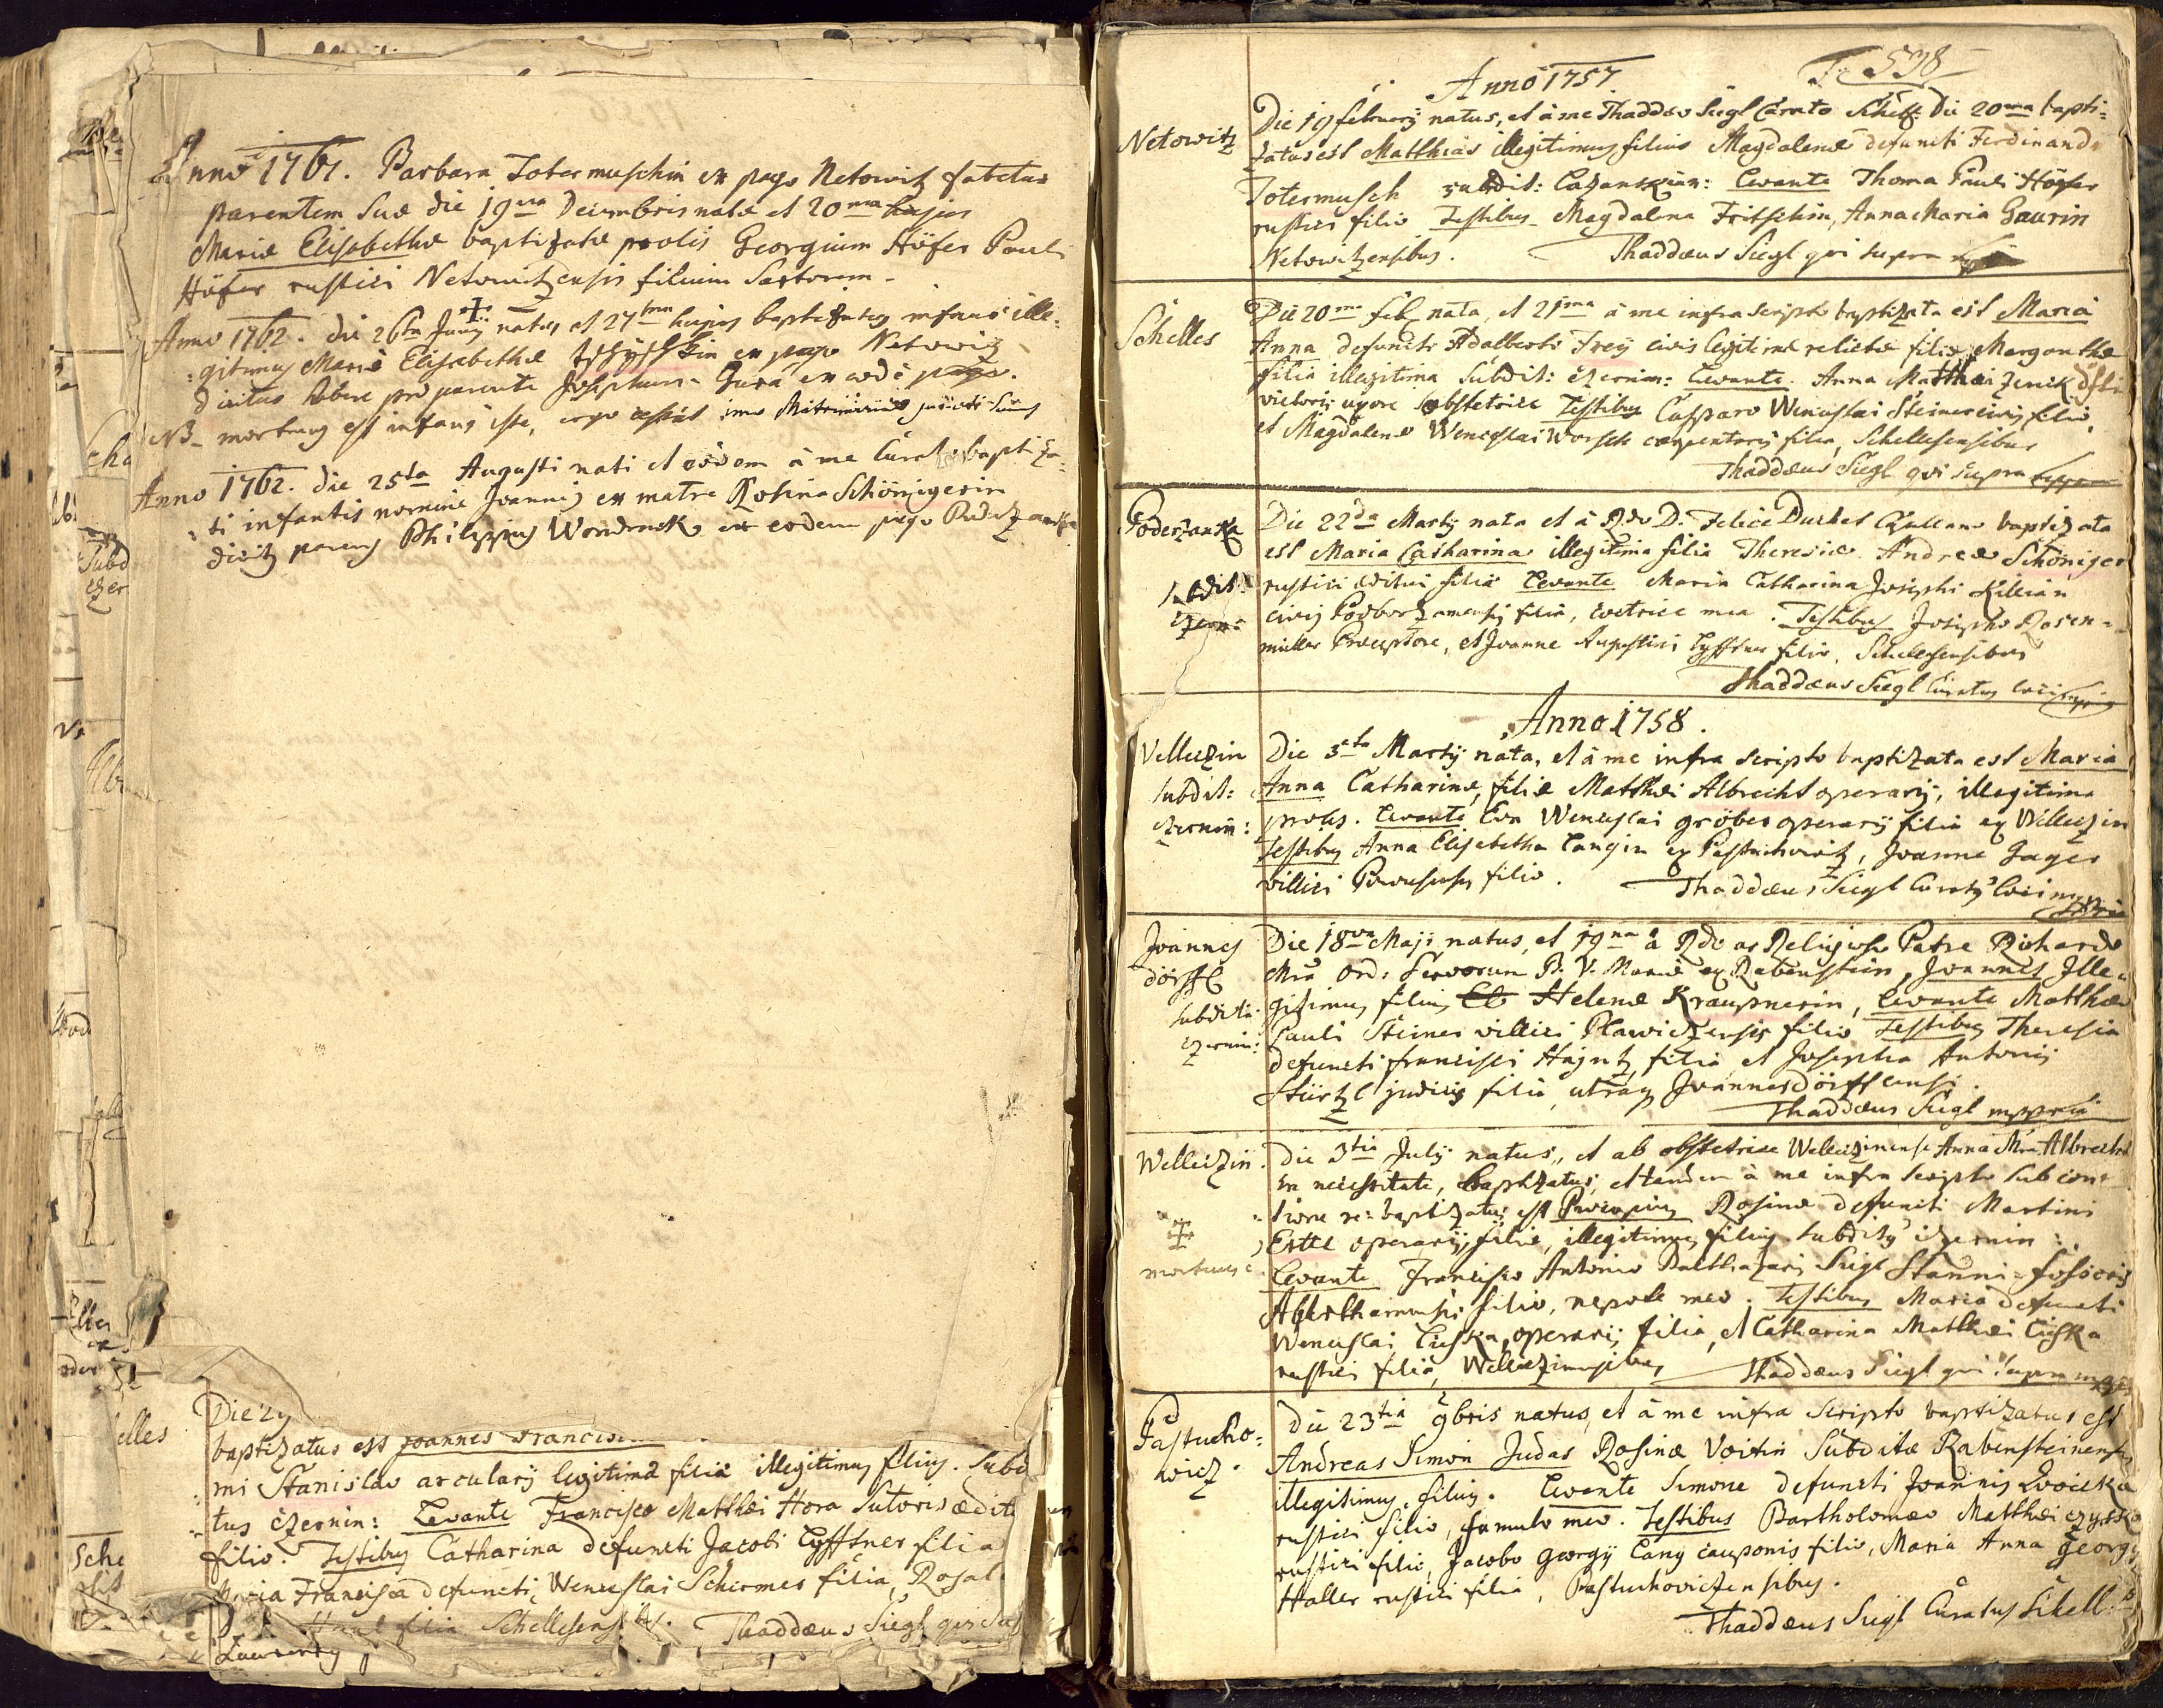 Anno 1761. Barbara Totermuschin ex pago Netowitz fatetur
parentem suae die 19na Decembris natae et 20ma hujus
Mariae Elisabethae baptizatae prolis Georgium Höfer Pauli
Höfer rustici Netowitzensis filium Sartorem
Anno 1762. die 26ta Junij natus et 27ma hujus baptizatus infans ille=
=gitimus Mariae Elisabethae ex pago Netowitz
dicitur habere pro parente Josephum Gura ex eodē pago.
NB. mortuus est infans iste, ergo
Anno 1762. die 25ta Augusti nati et eodem à me Curat: baptiza=
=ti infantis nomine Joannis ex matre Rosina Schönigerin
dicitur parens Philippus Wondrack ex eodem pago
Die 2
baptizatus est Joannes Francis
mi Stanislao arcularij legitimâ filiâ illegitimus filius. Subdi
tus czernin: Levante Francisco Matthaei Hora Sutoris aeditu
filio. Testibus Catharina defuncti Jacobi Lyfftner filia
Maria Francisca defuncti Wenceslai Schirmer filia, Rosal
filia Schellesensibus. Thaddaeus Siegl qui sup
elles
Sche
Anno 1757.
598
Netowitz
Die 19 februarij natus, et à me Thaddaeo Siegl Curato Schell: die 20ma bapti=
zatus est Matthias illegitimus filius Magdalenae defuncti Ferdinandi
Totermusch subdit: Levante Thoma Pauli Höfer
rustici filio Testibus Magdalena Fritschin, Anna Maria Gaurin
Netowitzensibus. Thaddaeus Siegl qui supra
Schelles
Die 20ma feb nata, et 21ma à me infra scripto baptizata est Maria
Anna defuncti Adalberti Freÿ civis legitimè relictae filiae Margarethae
filia illegitima subdit: czernin: Levante Anna Matthaei Zenck
victoris uxore obstetrice Testibus Casparo Wenceslai Steiner civis filio,
et Magdalena Wenceslai Worsch carpentarij filia, Schellesensibus
Thaddaeus Siegl qui supra
Poderzanka
subdit:
czern:
Die 22da Martij nata et à Rdo D. Felice Duchet baptizata
est Maria Catharina illegitima filia Theresiae Andreae Schöniger
rustici aeditui filiâ Levante Maria Catharina Josephi Killian
civis filiâ, coctrice mea. Testibus Josepho Rosen=
müller Praeceptore, et Joanne Augustini Lyfftner filio, Schellesensibus
Thaddaeus Siegl Curatus loci
Anno 1758.
Velleczin
subdit:
czernin:
Die 5ta Martij nata, et à me infra scripto baptizata est Maria
Anna Catharinae, filiae Matthaei Albrecht operarij, illegitima
proles. Levante Eva Wenceslai gröber operarij filia ex Welleczin
Testibus Anna Elisabetha Langin ex Pastuchowitz, Joanne Gager
villici filio. Thaddaeus Siegl Curatus loci mppria
Joannes
dörffl
subdit:
czernin:
Die 18va Maji natus, et 19na à Rdo ac Religioso Patre Richardo
Mria ord: Servorum B. V. Mariae ex Rabenstein, Joannes Ille=
gitimus filius Helenae Kraupnerin, Levante Matthaeo
Pauli Steiner villici Plawiczensis filio Testibus Theresia
defuncti francisci Hajntz filia et Josepha Antonij
Stürtzl judicis filiâ, utraq Joannesdörfflensi.
Thaddaeus Siegl mppria
Welleczin.
mortuus e
Die 3tia Julij natus, et ab obstetrice Welleczinensi Anna Mria Albrecht
in necessitate, baptizatus, et tandem à me infra scripto sub con=
=tione re=baptizatus est Procopius Rosinae defuncti Martini
Ertl operarij filiae, illegitimus filius subditus czernin:
Levante Francisco Antonio Balthazari Siegl Stanni=fossoris
filio, nepote meo. Testibus Maria defuncti
Wenceslai Liska operarij filia, et Catharina Matthaei Liska
rustici filiâ, Welleczinensibus Thaddaeus Siegl qui supra mppr
Pastucho=
wicz.
Die 23tia 9bris natus, et à me infra scripto baptizatus est
Andreas Simon Judas Rosinae Voitin Subditae Rabensteinensis
illegitimus filius. Levante Simone defuncti Joannis
rustici filio, famulo meo. Testibus Bartholomaeo Matthaei
rustici filio, Jacobo Georgij Lang cauponis filio, Maria Anna Georgij
Haller rustici filiâ, Pastuchoviczensibus.
Thaddaeus Siegl Curatus Schell: